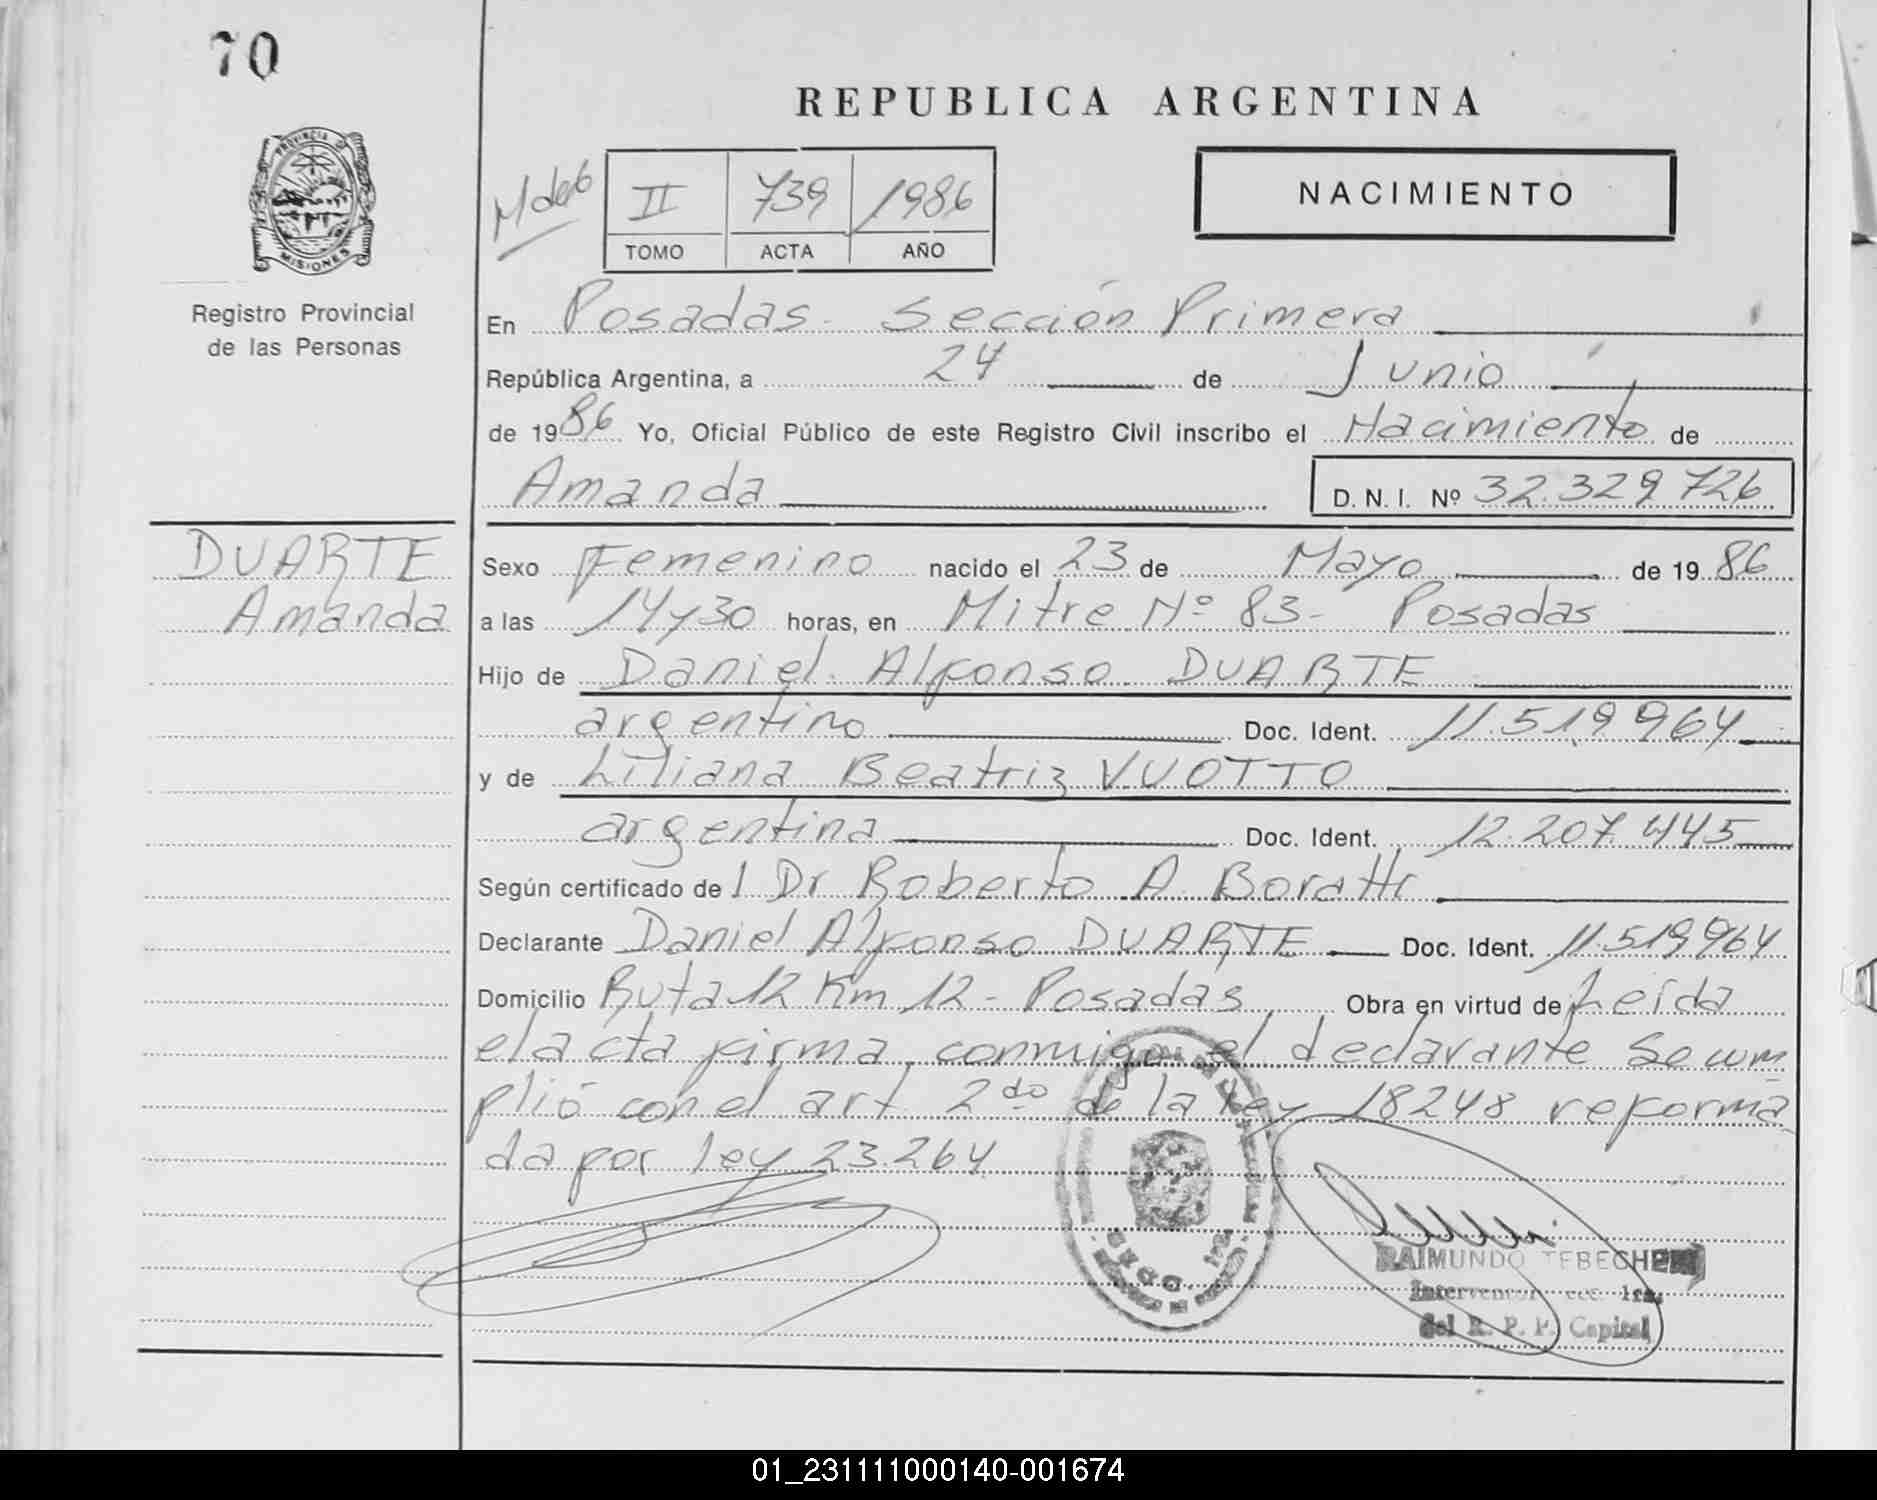 70
REPUBLICA ARGENTINA
PROVINCIA DE
MISIONES
Registro Provincial
de las Personas
II 739 1986
TOMO ACTA AÑO
NACIMIENTO
En Posadas. Sección Primera
República Argentina, a 24 de Junio
de 1986 Yo, Oficial Público de este Registro Civil inscribo el Nacimiento de
Amanda D. N. I. Nº 32.329.726
DUARTE
Amanda
Sexo Femenino nacido el 23 de Mayo de 1986
a las 14 y 30 horas, en Mitre Nº 83- Posadas
Hijo de Daniel Alfonso DUARTE
argentino Doc. Ident. 11.519.964
y de Liliana Beatriz VUOTTO
argentina Doc. Ident. 12.207.445
Según certificado del Dr Roberto A.
Declarante Daniel Alfonso DUARTE Doc. Ident. 11.519964
Domicilio Ruta 12 Km 12 - Posadas Obra en virtud de Leída
el acta firma conmigo el declarante Se cum
plió con el art 2do de la Ley 18248 reforma
da por ley 23.264
RAIMUNDO
del R. P. P. Capital
01_231111000140-001674